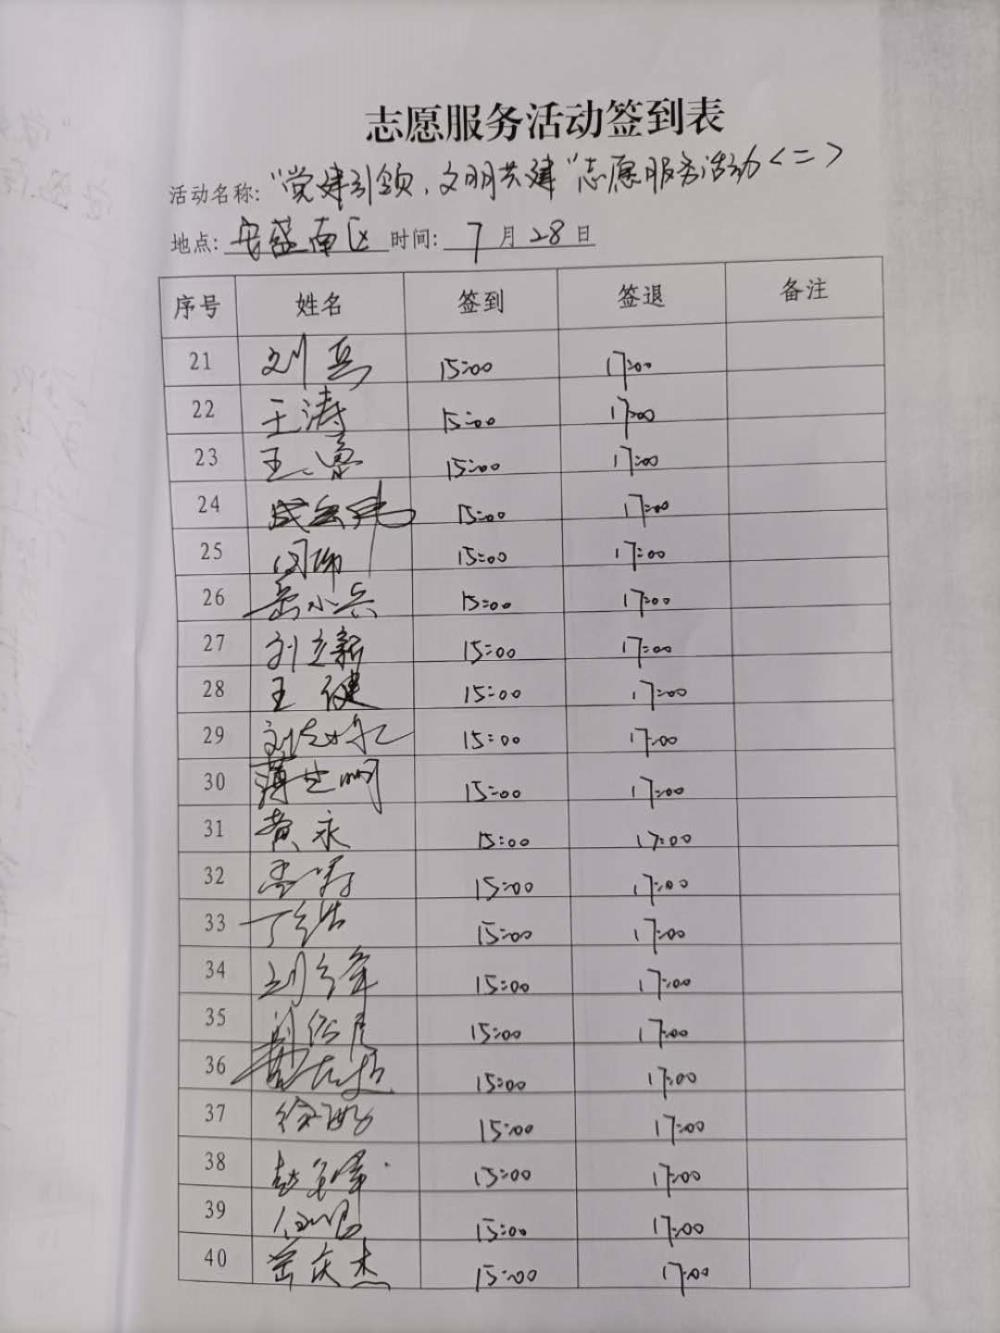 志愿服务活动签到表
活动名称: "党建引领、文明共建"志愿服务活动<二>
地点: 安盛南区 时间: 7月28日
序号 姓名 签到 签退 备注
21 刘 15:00 17:00
22 王涛 15:00 17:00
23 王 15:00 17:00
24 15:00 17:00
25 15:00 17:00
26 岳小兵 15:00 17:00
27 刘立新 15:00 17:00
28 王健 15:00 17:00
29 刘 15:00 17:00
30 薄 15:00 17:00
31 黄永 15:00 17:00
32 15:00 17:00
33 丁 15:00 17:00
34 刘 15:00 17:00
35 15:00 17:00
36 15:00 17:00
37 徐 15:00 17:00
38 赵 15:00 17:00
39 15:00 17:00
40 庆杰 15:00 17:00